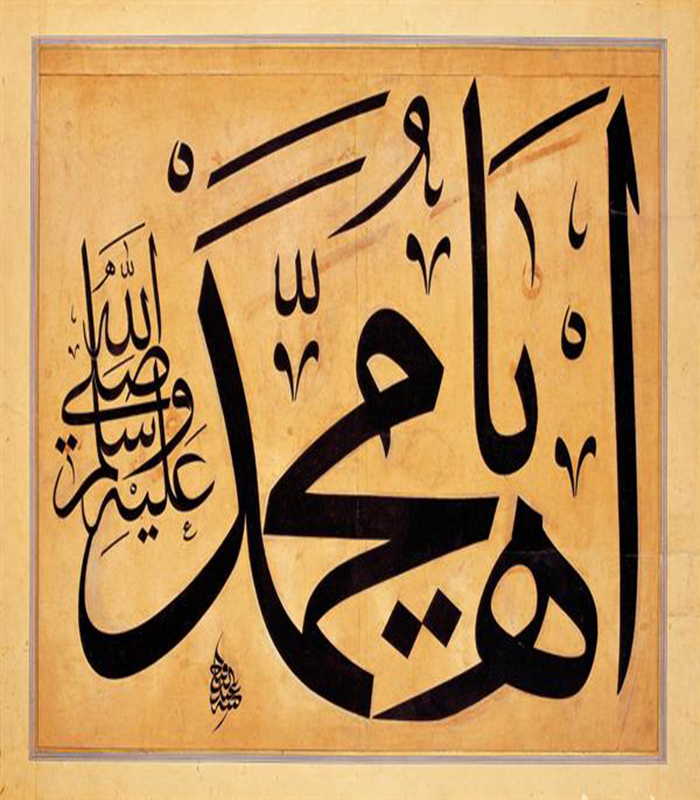 يا محمد
صلى الله عليه وسلم